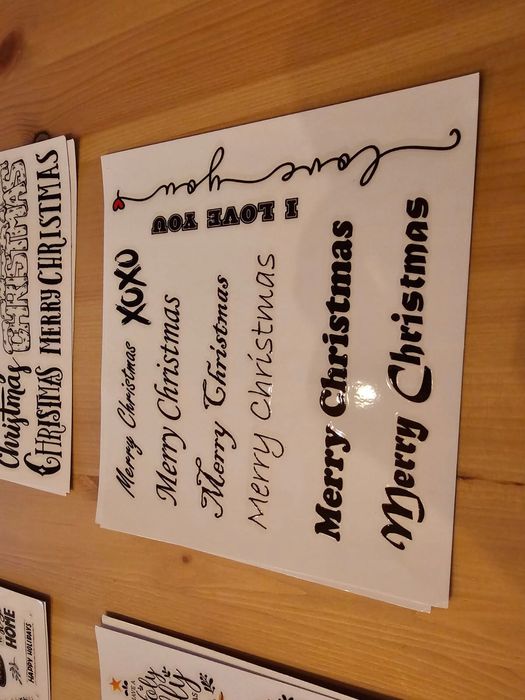 Merry Christmas
XOXO
Merry Christmas
Merry Christmas
Merry Christmas
Merry Christmas
Merry Christmas
I LOVE YOU
love you
CHRISTMAS
MERRY CHRISTMAS
Christmas
CHRISTMAS
HOME
HAPPY HOLIDAYS